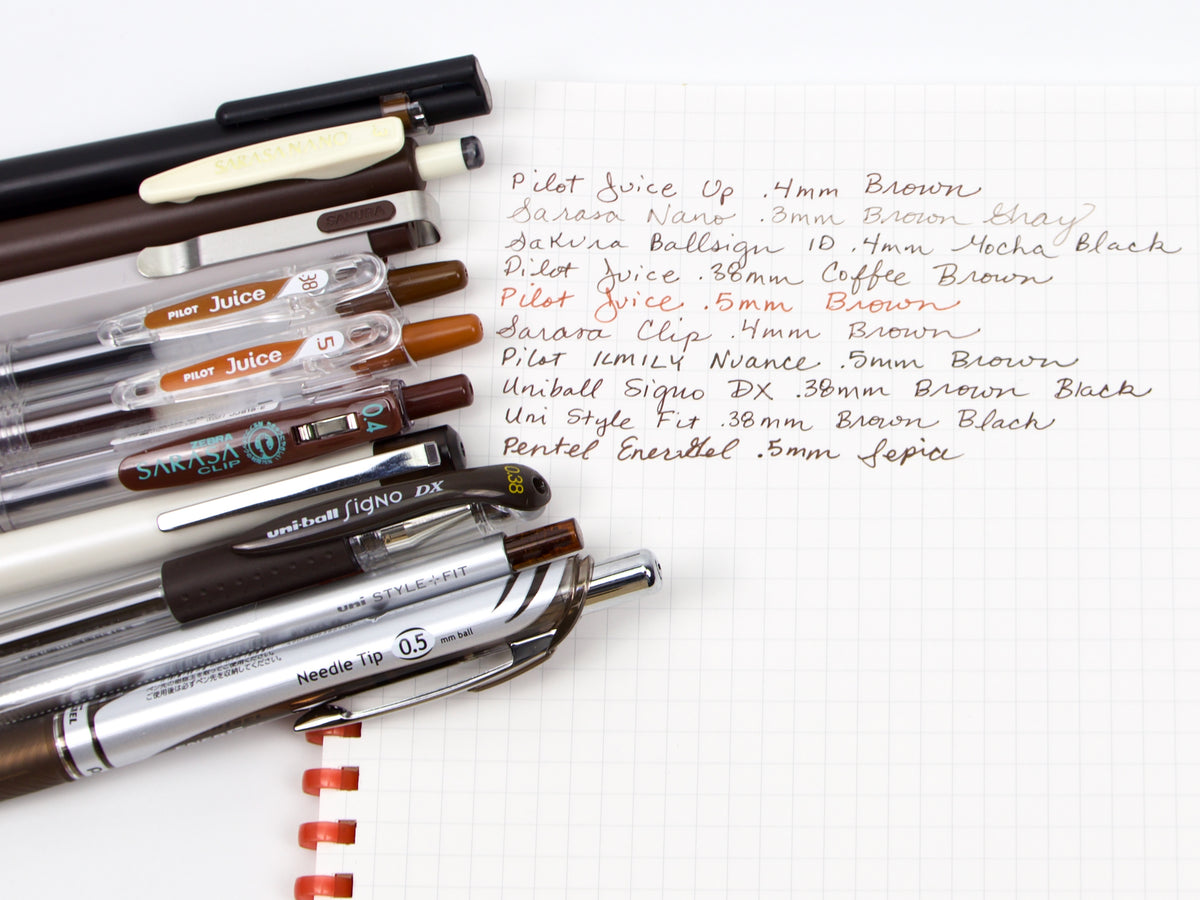 SARASA NANO
SAKURA
PILOT Juice 38
PILOT Juice 5
ZEBRA
SARASA
CLIP
0.4
uni-ball SigNo DX 0.38
uni STYLE+FIT
Needle Tip 0.5 mm ball
ご使用後は必ずペン先を収納してください。
Pilot Juice Up .4mm Brown
Sarasa Nano .3mm Brown Gray
Sakura Ballsign ID .4mm Mocha Black
Pilot Juice .38mm Coffee Brown
Pilot Juice .5mm Brown
Sarasa Clip .4mm Brown
Pilot ILMILY Nuance .5mm Brown
Uniball Signo DX .38mm Brown Black
Uni Style Fit .38mm Brown Black
Pentel EnerGel .5mm Sepia